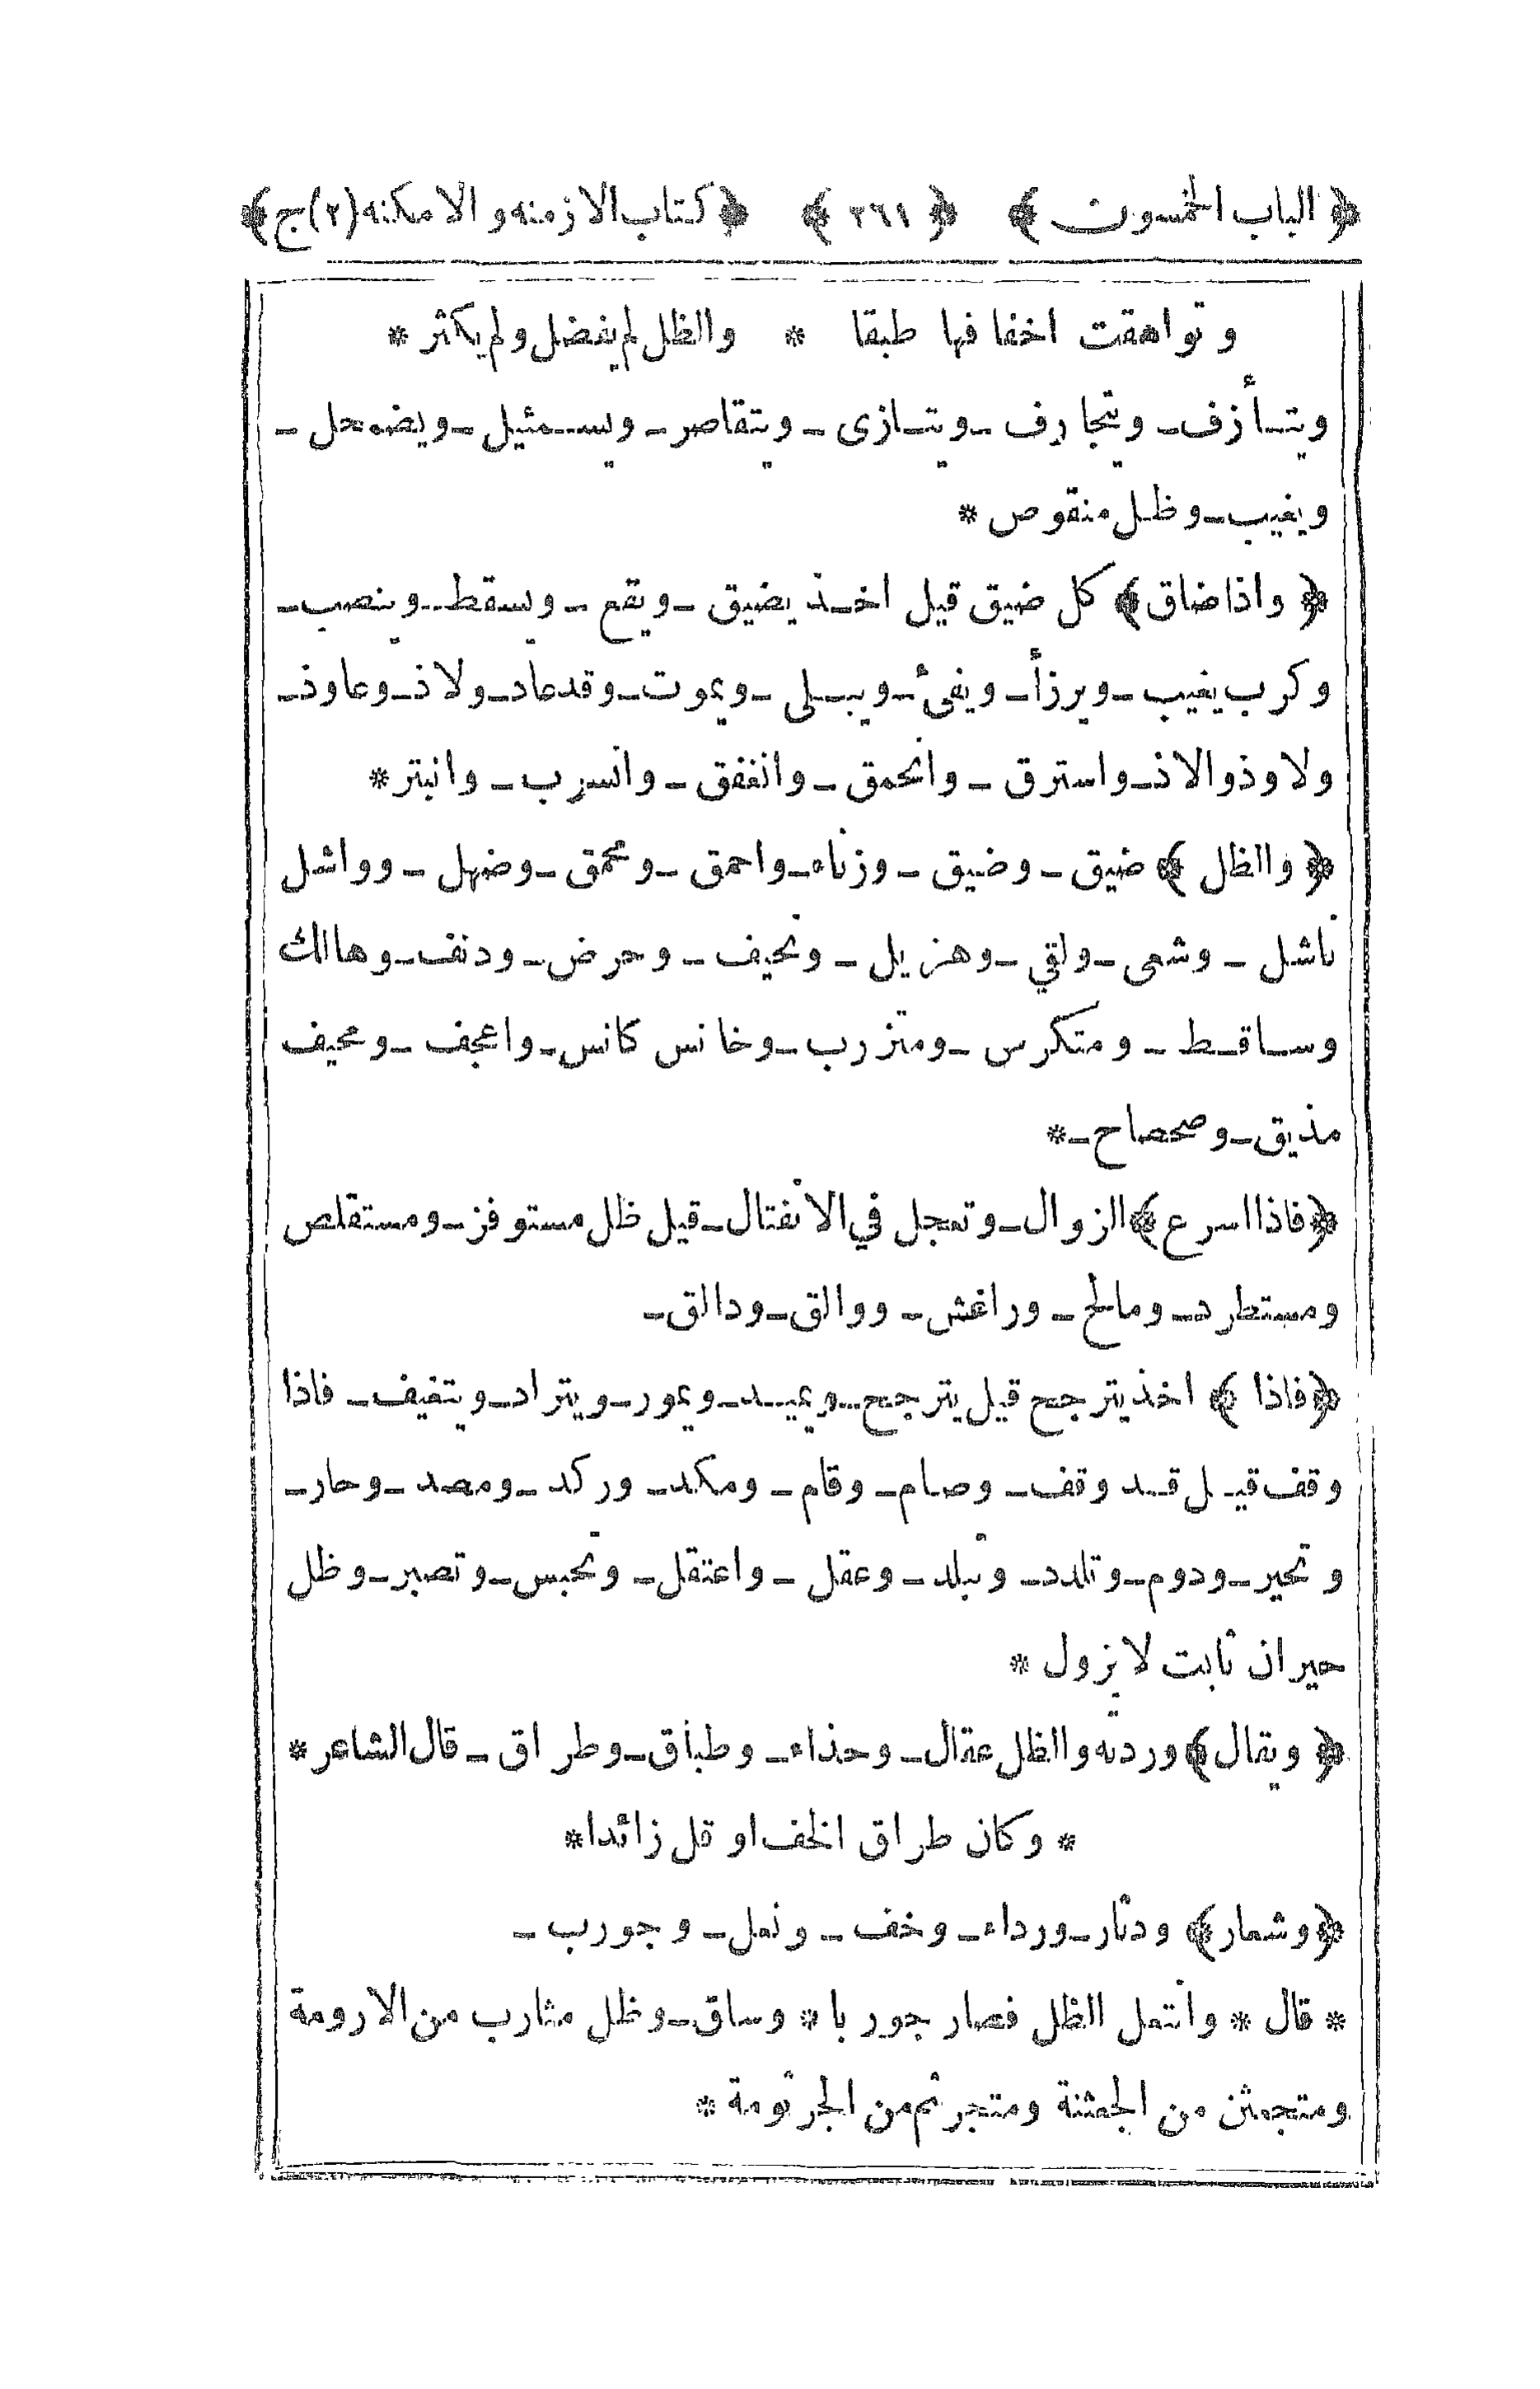 ﴿ الباب الخمسون ﴾ ﴿ ٢٦١ ﴾ ﴿ كتاب الازمنه و الامكنه (٢) ج ﴾
و تواهقت اخفافها طبقا * والظل لم يفضل ولم يكثر *
ويتـأزف ـ ويتجارف ـ ويتـازى ـ ويتقاصر ـ ويسـمئيل ـ ويضمحل ـ
ويغيب ـ وظل منقوص *
﴿ واذا ضاق ﴾ كل ضيق قيل اخـذ يضيق ـ ويقع ـ ويسقط ـ وينصب ـ
وكرب يغيب ـ ويرزأ ـ ويفئ ـ ويبـلى ـ ويموت ـ وقد عاد ـ ولاذ ـ وعاوذ ـ
ولاوذ والاذ ـ واسترق ـ وانحمق ـ وانغفق ـ وانسرب ـ وانبتر *
﴿ والظل ﴾ ضيق ـ وضيق ـ وزناه ـ واحمق ـ ومحمق ـ وضهل ـ وواشل
ناشل ـ وشعى ـ ولقي ـ وهزيل ـ ونحيف ـ وحرض ـ ودنف ـ وهالك
وسـاقـط ـ ومتكرس ـ ومتزرب ـ وخانس كانس ـ واعجف ـ ومحيف
مذيق ـ وصحصاح ـ *
﴿ فاذا اسرع ﴾ الزوال ـ وتعجل في الانفتال ـ قيل ظل مستوفز ـ ومستقلص
ومستطرد ـ ومالح ـ وراغش ـ ووالق ـ ودالق ـ
﴿ فاذا ﴾ اخذ يترجح قيل يترجح ـ ويميـد ـ ويمور ـ ويتراد ـ ويتفيف ـ فاذا
وقف قيـل قـد وقف ـ وصام ـ وقام ـ ومكد ـ وركد ـ ومصد ـ وحار ـ
وتحير ـ ودوم ـ وتلدد ـ وتبلد ـ وعقل ـ واعتقل ـ وتحبس ـ وتصبر ـ وظل
حيران ثابت لا يزول *
﴿ ويقال ﴾ وردته والظل عقال ـ وحذاء ـ وطباق ـ وطراق ـ قال الشاعر *
* وكان طراق الخف او قل زائدا *
﴿ وشعار ﴾ ودثار ـ ورداء ـ وخف ـ ونعل ـ وجورب ـ
* قال * وانتعل الظل فصار جوربا * وساق ـ وظل مثارب من الارومة
ومتجعثن من الجعثنة ومتجرثم من الجرثومة *